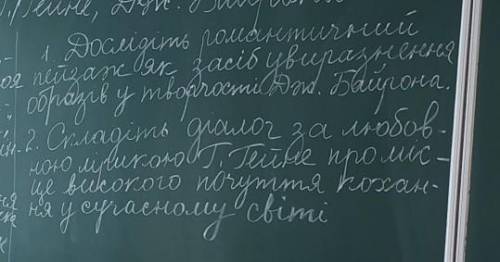 Гейне, Дж. Байрон
1. Дослідіть романтичний
пейзаж як засіб увиразнення
образів у творчості Дж. Байрона.
2. Складіть діалог за любов-
ною лірикою Г. Гейне про міс-
це високого почуття кохан-
ня у сучасному світі